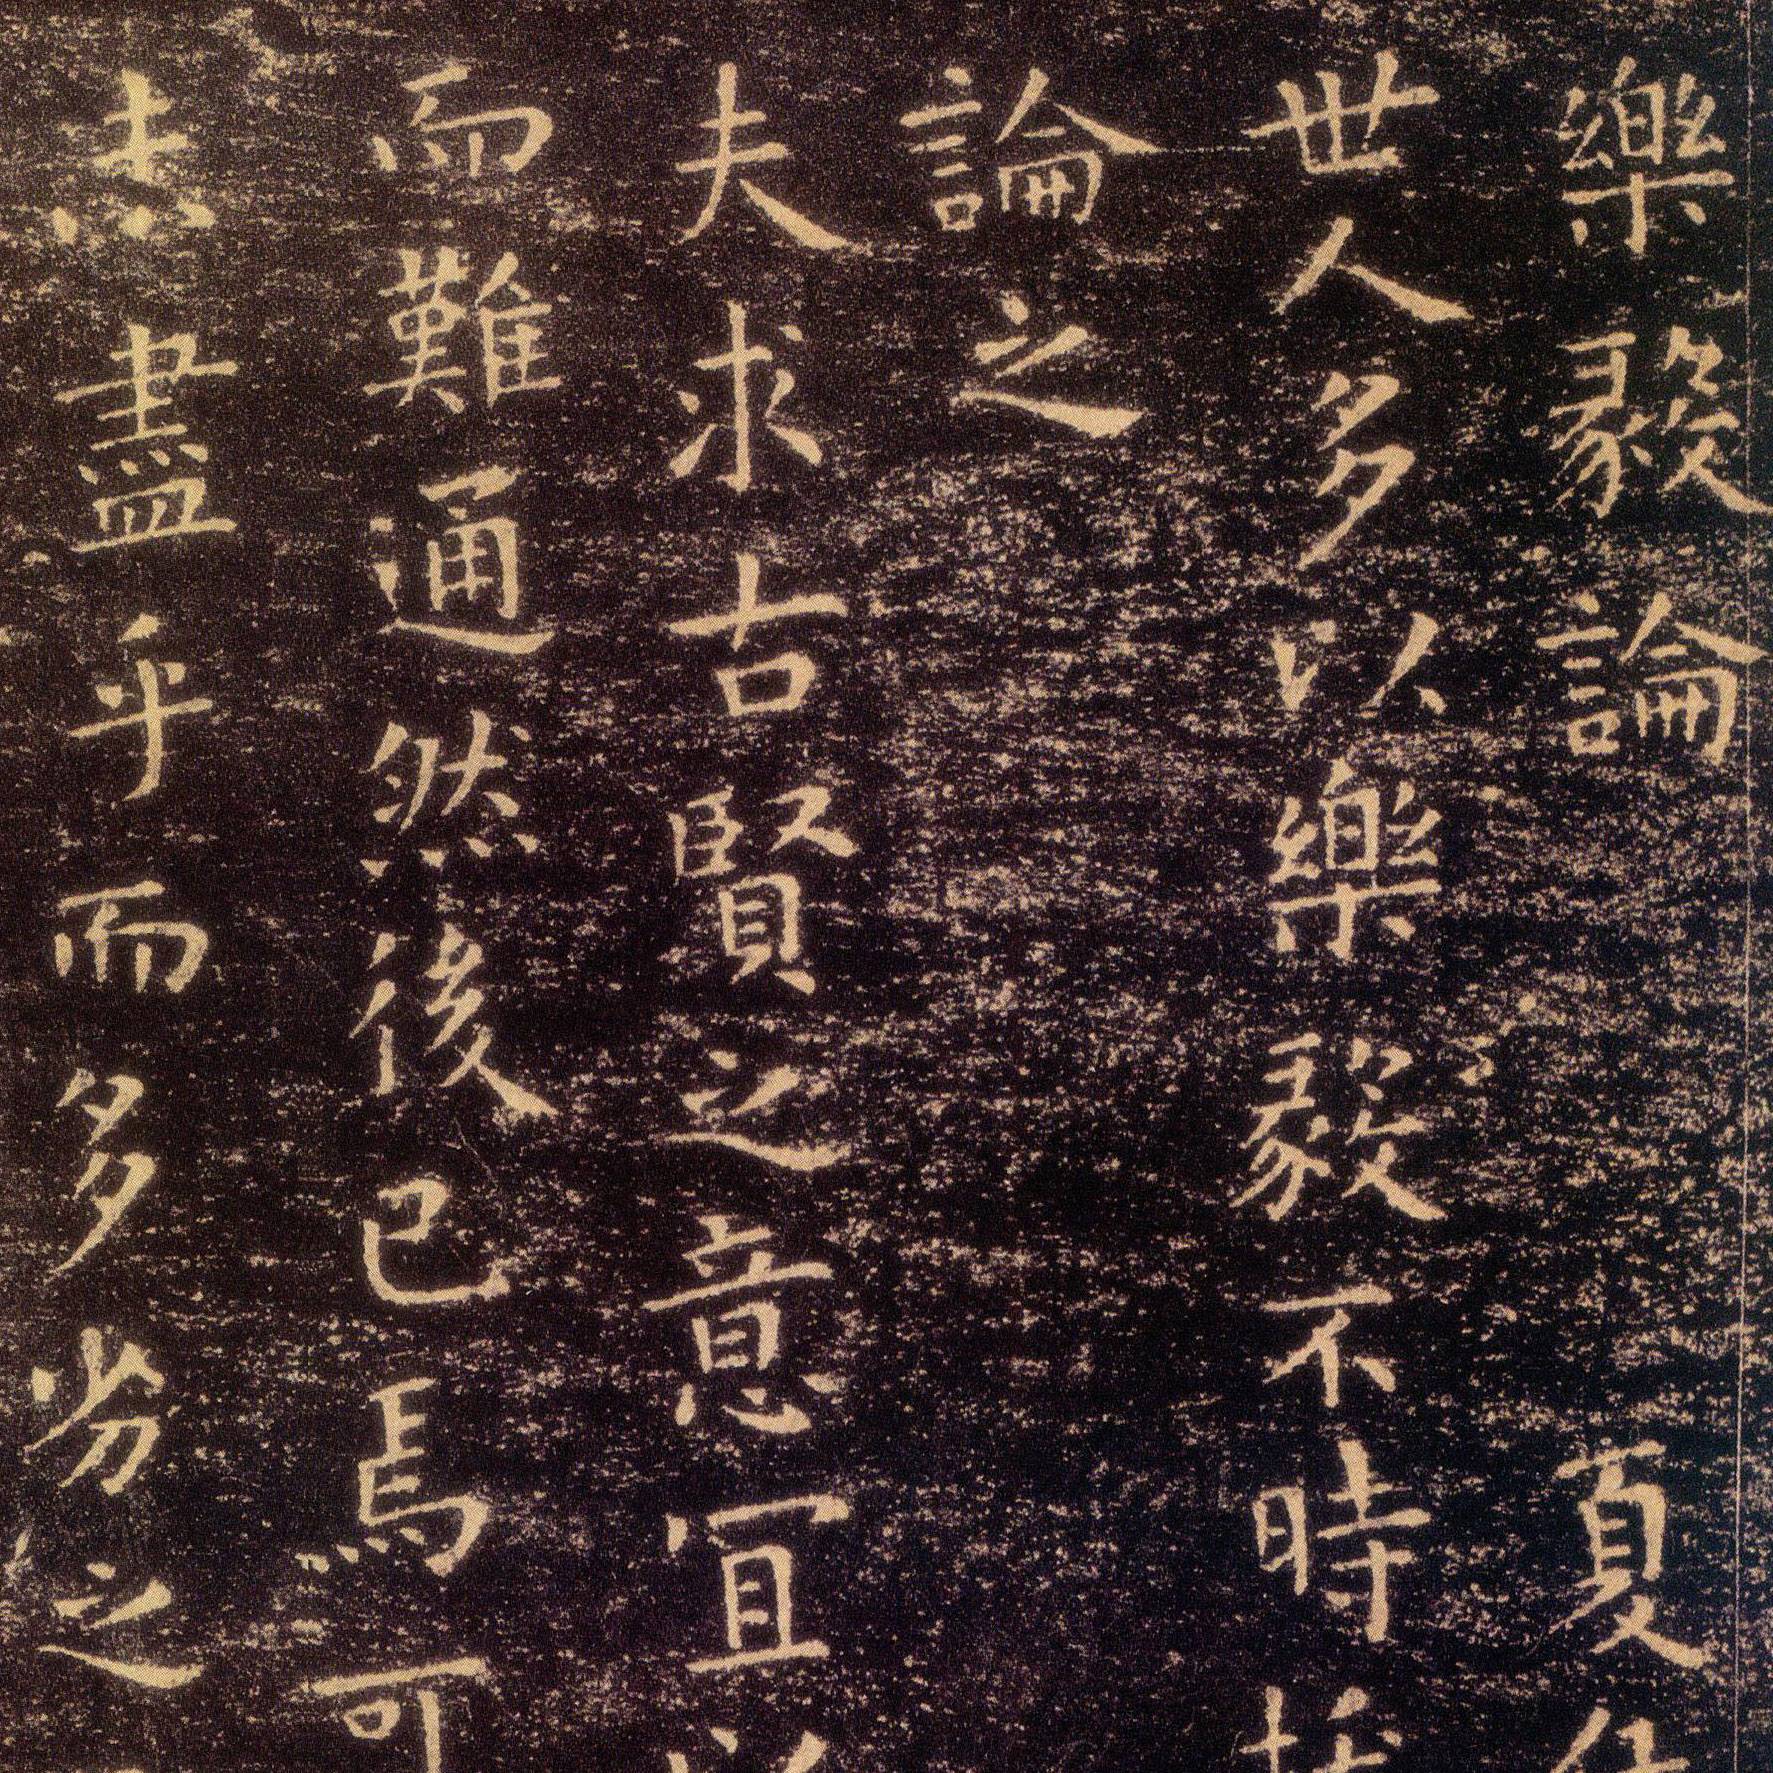 樂毅論 夏
世人多以樂毅不時
論之
夫求古賢之意宜
而難通然後已焉可
盡乎而多劣之